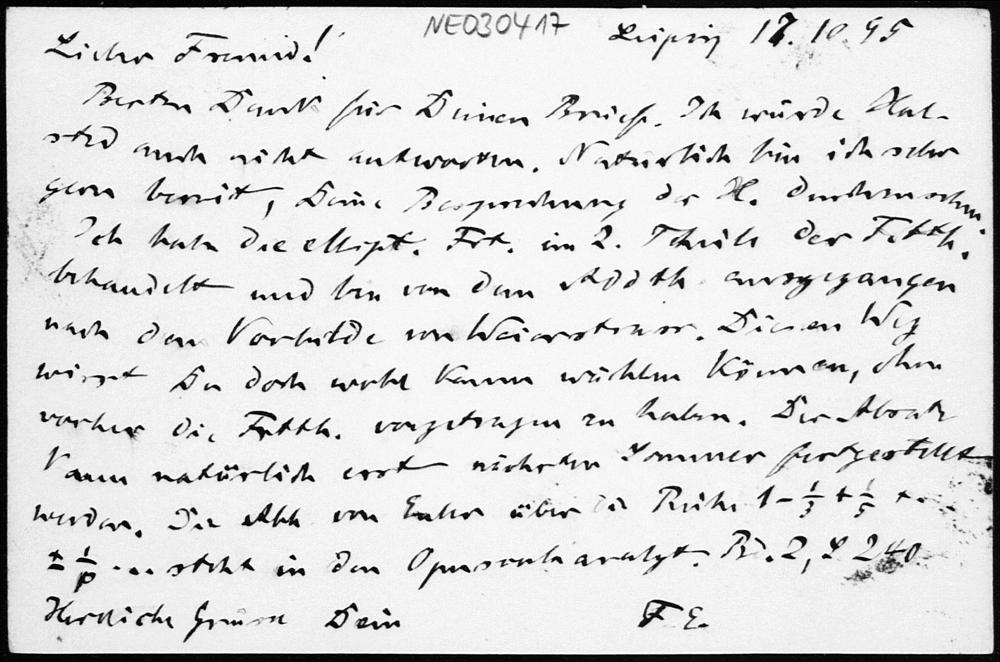 NE030417
Leipzig 17.10.95
Lieber Freund!
Besten Dank für Deinen Brief. Ich würde Hal-
sted auch nicht antworten. Natürlich bin ich sehr
gern bereit, Deine Besprechung der H. durchzusehn.
Ich habe die ellipt. Fkt. im 2. Theile der Fktth.
behandelt und bin von dem Addth ausgegangen
nach dem Vorbilde von Weierstrass. Diesen Weg
wirst Du doch wohl kaum wählen können, ohne
vorher die Fktth. vorgetragen zu haben. Der
kann natürlich erst nächsten Sommer fertgestellt
werden. Die Abh von Euler über die Reihe 1 - 1/3 + 1/5 + ..
± 1/p ... steht in den Opuscula analyt. Bd. 2, S 240.
Herzliche Grüsse Dein F E.